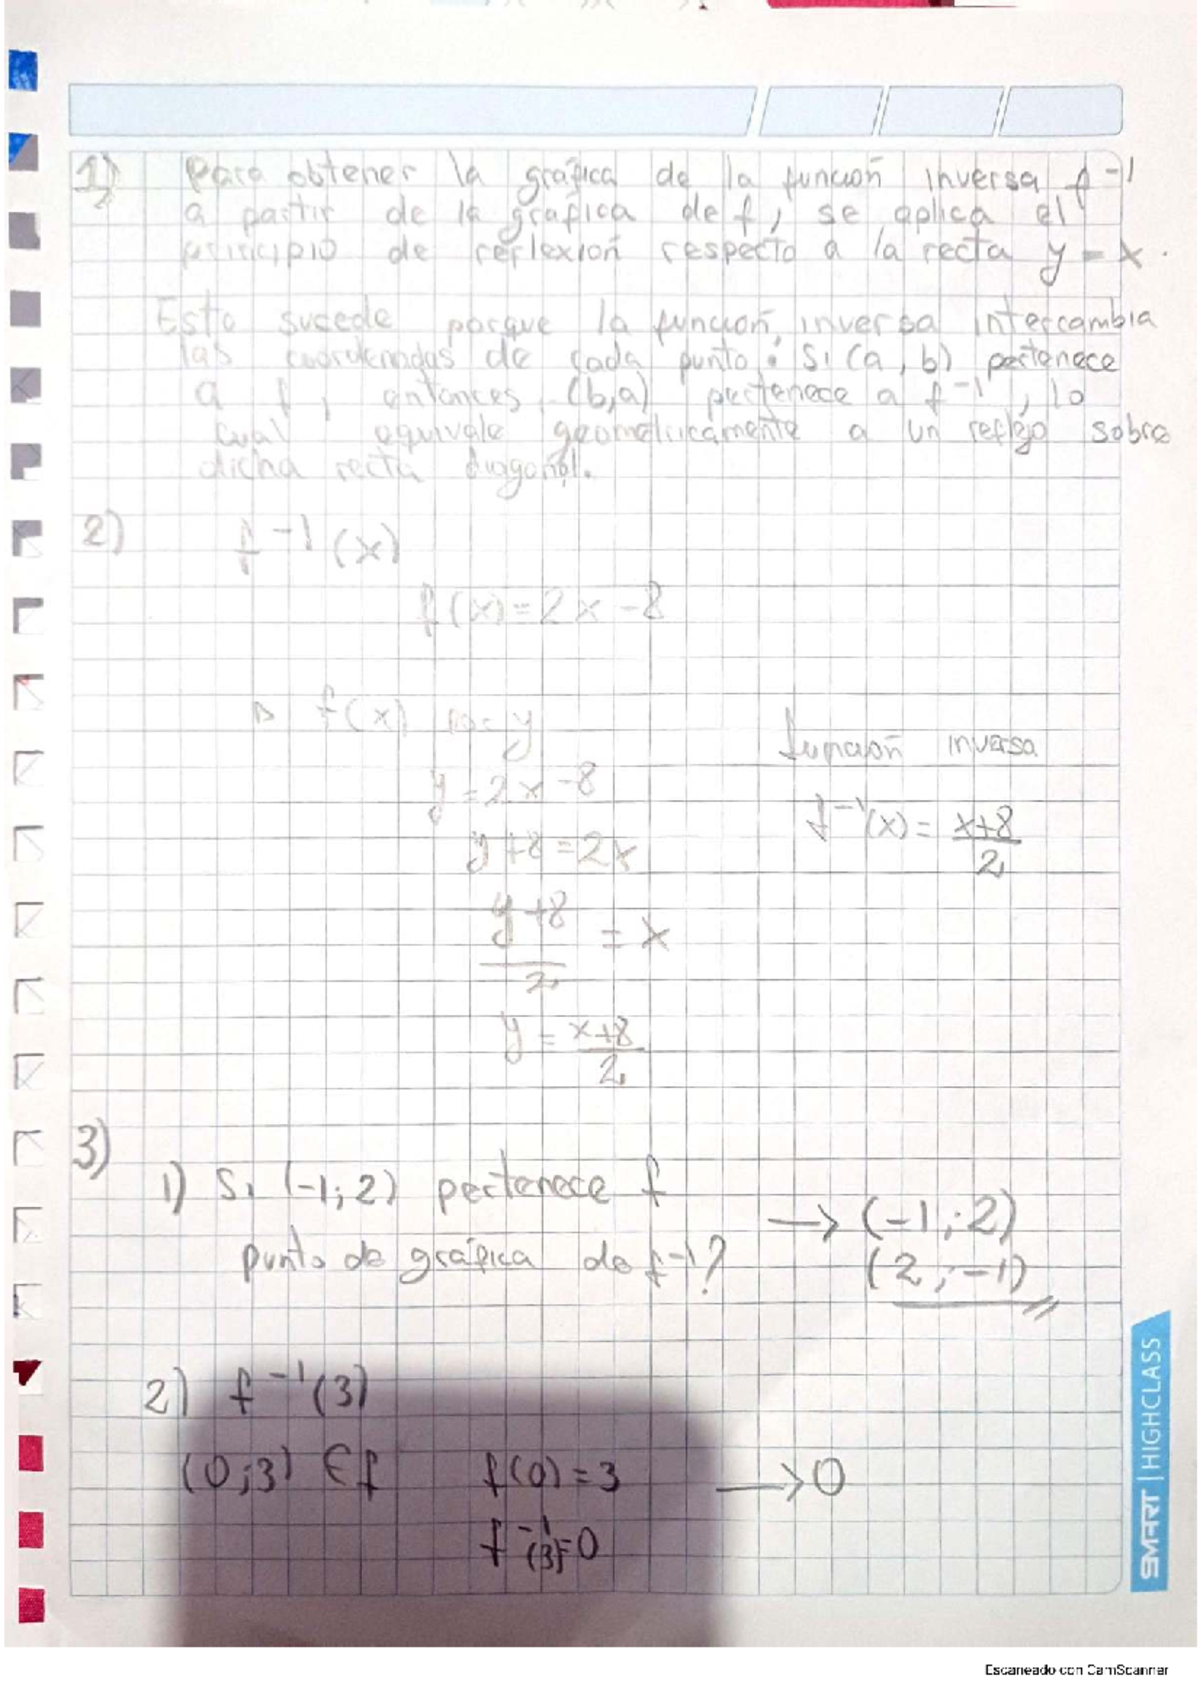 1) Para obtener la gráfica de la función inversa f⁻¹
a partir de la gráfica de f, se aplica el
principio de reflexión respecto a la recta y = x.
Esto sucede porque la función inversa intercambia
las coordenadas de cada punto: Si (a, b) pertenece
a f, entonces (b,a) pertenece a f⁻¹, lo
cual equivale geométricamente a un reflejo sobre
dicha recta diagonal.
2) f⁻¹(x)
f(x)=2x-8
f(x) por y
y=2x-8
y+8=2x
y+8/2 = x
y = x+8/2
función inversa
f⁻¹(x) = x+8/2
3)
1) Si (-1;2) pertenece f
punto de gráfica de f⁻¹?
→ (-1;2)
(2;-1)
2) f⁻¹(3)
(0;3) ∈ f f(0)=3 → 0
f⁻¹(3)=0
SMART | HIGHCLASS
Escaneado con CamScanner